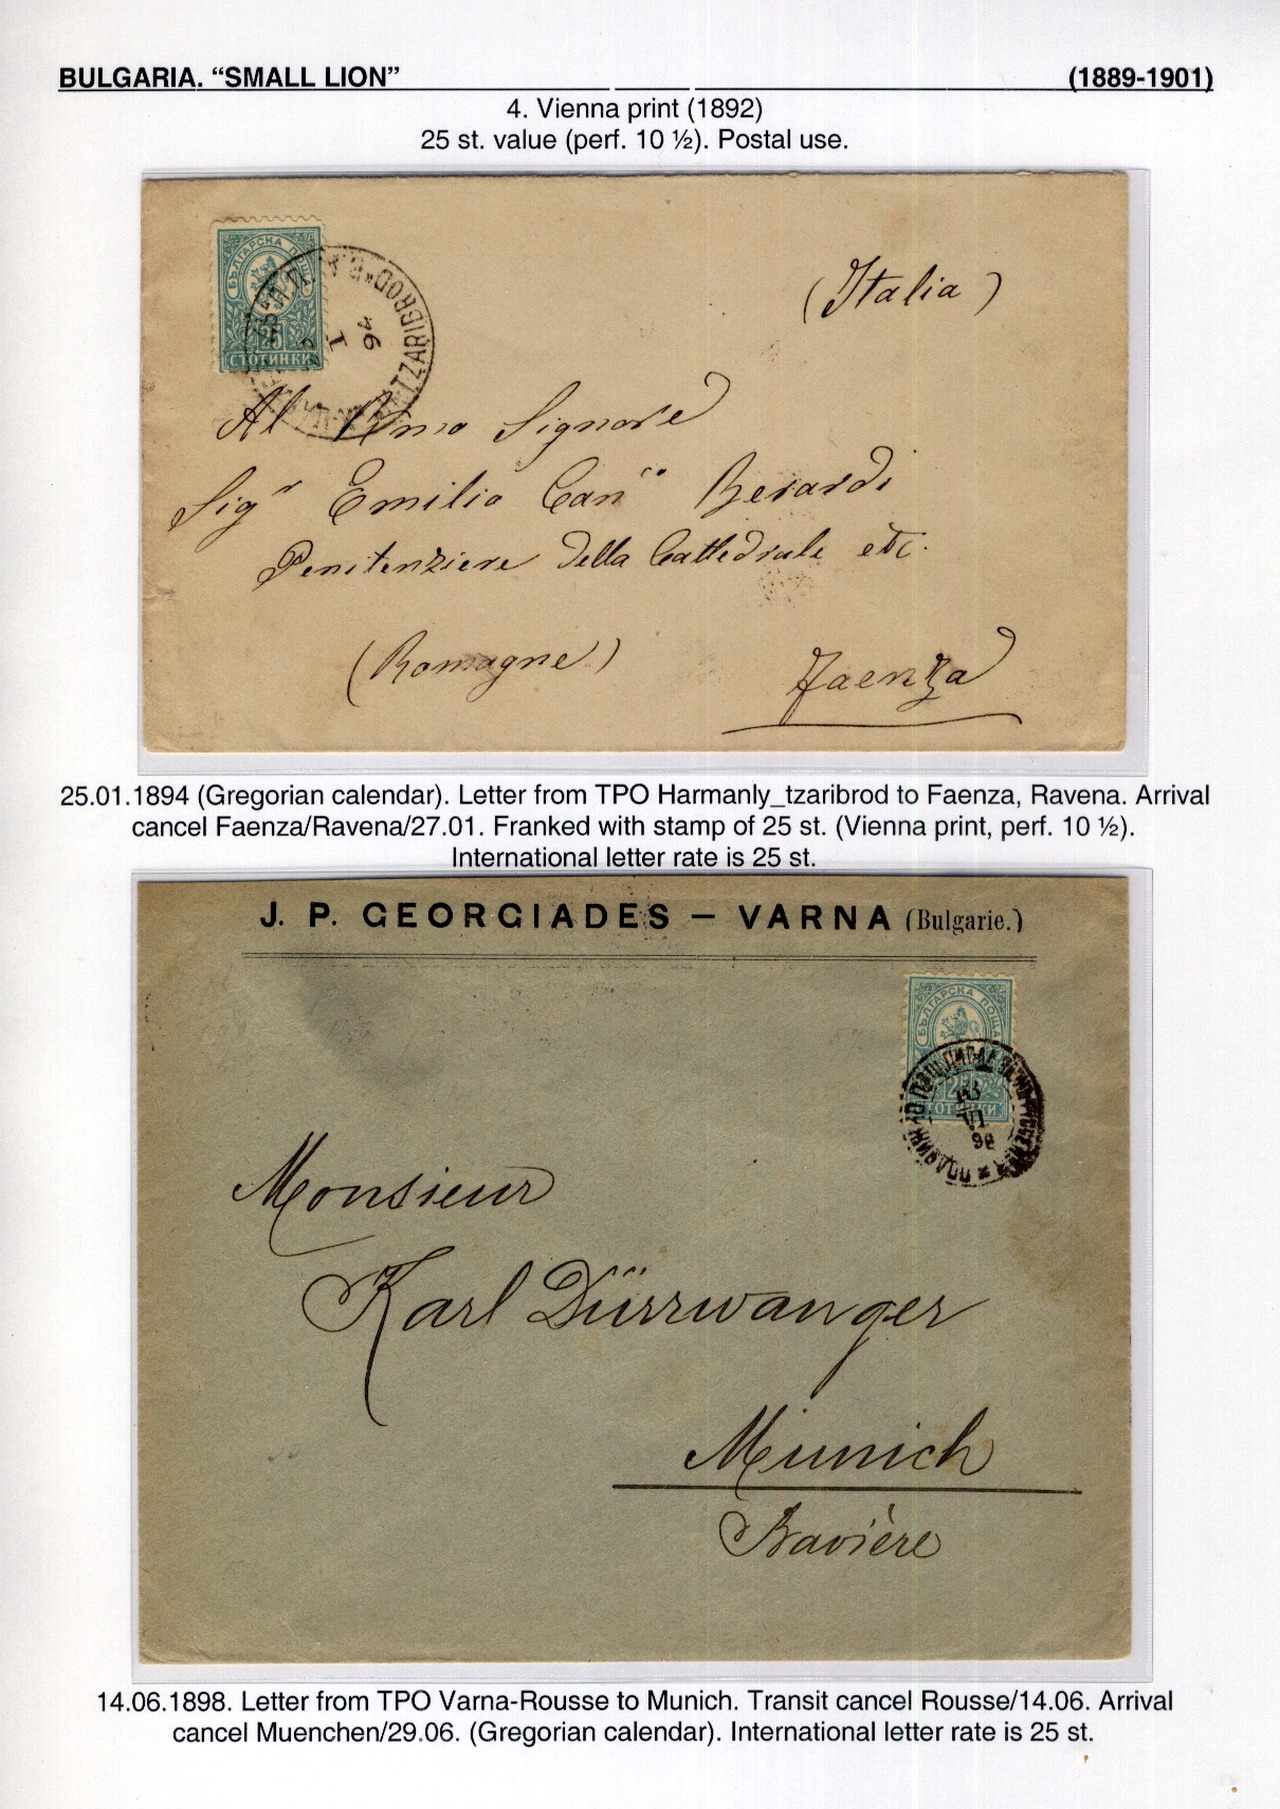 BULGARIA. “SMALL LION” (1889-1901)
4. Vienna print (1892)
25 st. value (perf. 10 ½). Postal use.
БЪЛГАРСКА ПОЩА
25
СТОТИНКИ
TZARIBROD
94
I
(Italia)
Al Rmo Signore
Sigr Emilio Can Berardi
Penitenziere della Cattedrale etc.
(Romagne)
Faenza
25.01.1894 (Gregorian calendar). Letter from TPO Harmanly_tzaribrod to Faenza, Ravena. Arrival
cancel Faenza/Ravena/27.01. Franked with stamp of 25 st. (Vienna print, perf. 10 ½).
International letter rate is 25 st.
J. P. GEORGIADES – VARNA (Bulgarie.)
БЪЛГАРСКА ПОЩА
25
СТОТИНКИ
VI
98
Monsieur
Karl Dürrwanger
Munich
Bavière
14.06.1898. Letter from TPO Varna-Rousse to Munich. Transit cancel Rousse/14.06. Arrival
cancel Muenchen/29.06. (Gregorian calendar). International letter rate is 25 st.